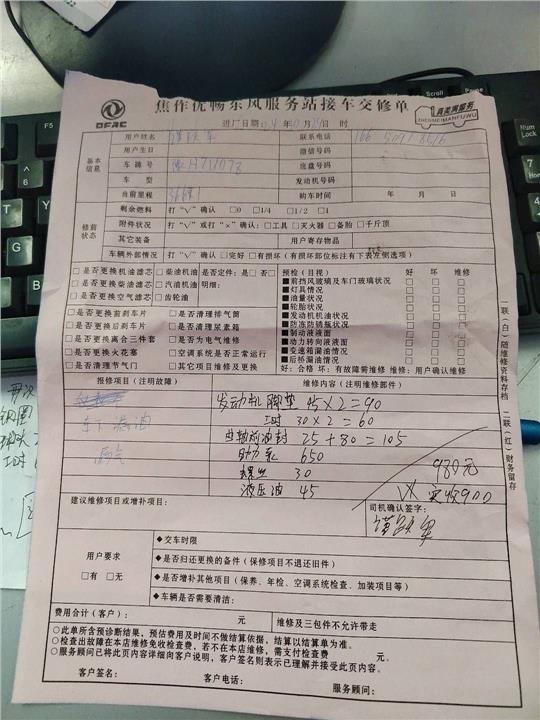 焦作优畅东风服务站接车交修单
DFAC
真美满服务
ZHENMEIMANFUWU
进厂日期: 年 月 日 时
基本信息
用户姓名
联系电话
用户生日
微信号码
车牌号
底盘号码
车 型
发动机号码
当前里程
购车时间 年 月 日
修前状态
剩余燃料 打“√”确认 □0 □1/4 □1/2 □1
附件状况 打“√”或打“×”确认:□工具 □灭火器 □备胎 □千斤顶
其它装备
用户寄存物品
车辆外部情况 打“√”确认 □完好 □有损坏(有损坏部位标注右下表左侧选项)
□是否更换机油滤芯 □柴油机油 是否定件:是□ 否□
□是否更换柴油滤芯 □汽油机油 明细:
□是否更换空气滤芯 □齿轮油
□是否更换前刹车片 □是否清理排气筒
□是否更换后刹车片 □是否清理尿素箱
□是否更换离合三件套 □是否为电气维修
□是否更换火花塞 □空调系统是否正常运行
□是否清理节气门 □其它项目维修及更换
预检(目视) 好 坏 维修
■前挡风玻璃及车门玻璃状况 □ □ □
■灯具情况 □ □ □
■油量状况 □ □ □
■轮胎状况 □ □ □
■发动机机油状况 □ □ □
■防冻防锈瓶状况 □ □ □
■制动液液面 □ □ □
■动力转向液液面 □ □ □
■变速箱漏油情况 □ □ □
■后桥漏油情况 □ □ □
好:合格 坏:有故障需维修 维修:用户确认维修
报修项目(注明故障)
维修内容(注明维修部件)
发动机脚垫 45×2=90
工时 30×2=60
车下漏油
曲轴前油封 25+80=105
漏气
助力泵 650
螺丝 30
980元
液压油 45
实收900
建议维修项目或增补项目:
司机确认签字:
用户要求
□有 □无
◆交车时限
◆是否归还更换的备件(保修项目不退还旧件)
◆是否增补其他项目(保养、年检、空调系统检查、加装项目等)
◆车辆是否需要清洁:
费用合计(客户): 元
维修及三包件不允许带走
○此单所含预诊断结果,预估费用及时间不做结算依据,结算以结算单为准。
○检查出故障在本店维修免收检查费,若不在本店维修,需支付检查费 元。
○服务顾问已将此页内容详细向客户说明,客户签名则表示已理解并接受此页内容。
客户签名: 客户电话: 服务顾问:
一联(白)随维修资料存档 二联(红)财务留存